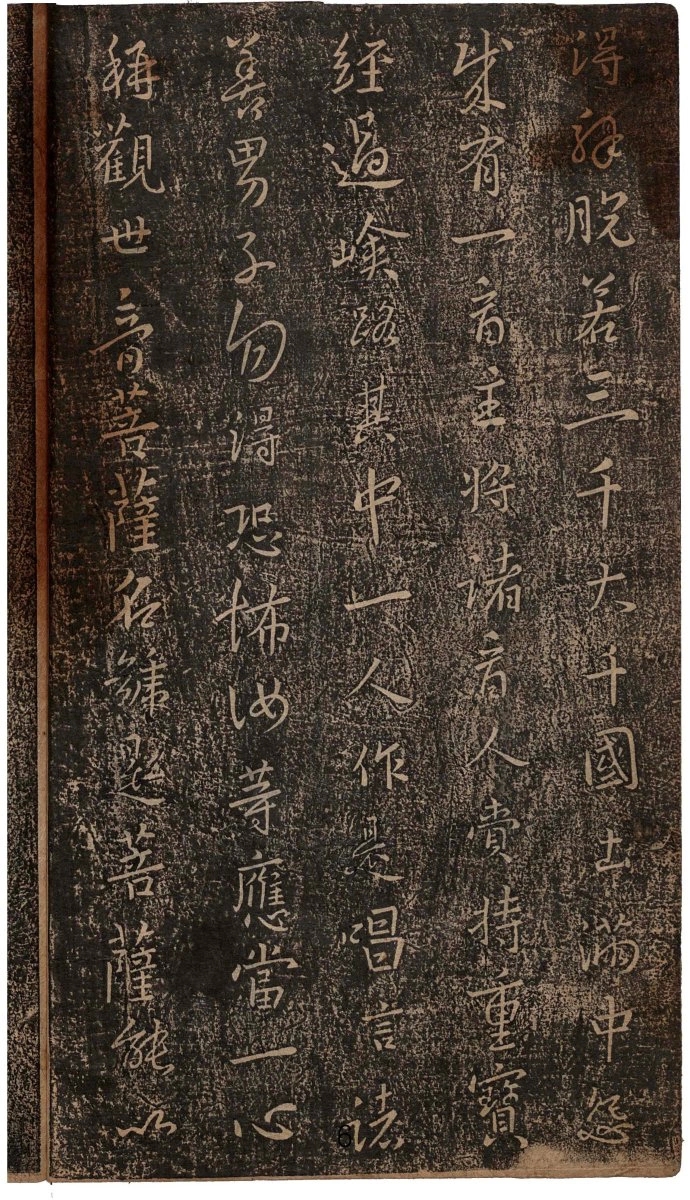 得解脫若三千大千國土滿中怨
賊有一商主將諸商人賫持重寶
經過嶮路其中一人作是唱言諸
善男子勿得恐怖汝等應當一心
稱觀世音菩薩名號是菩薩能以
6